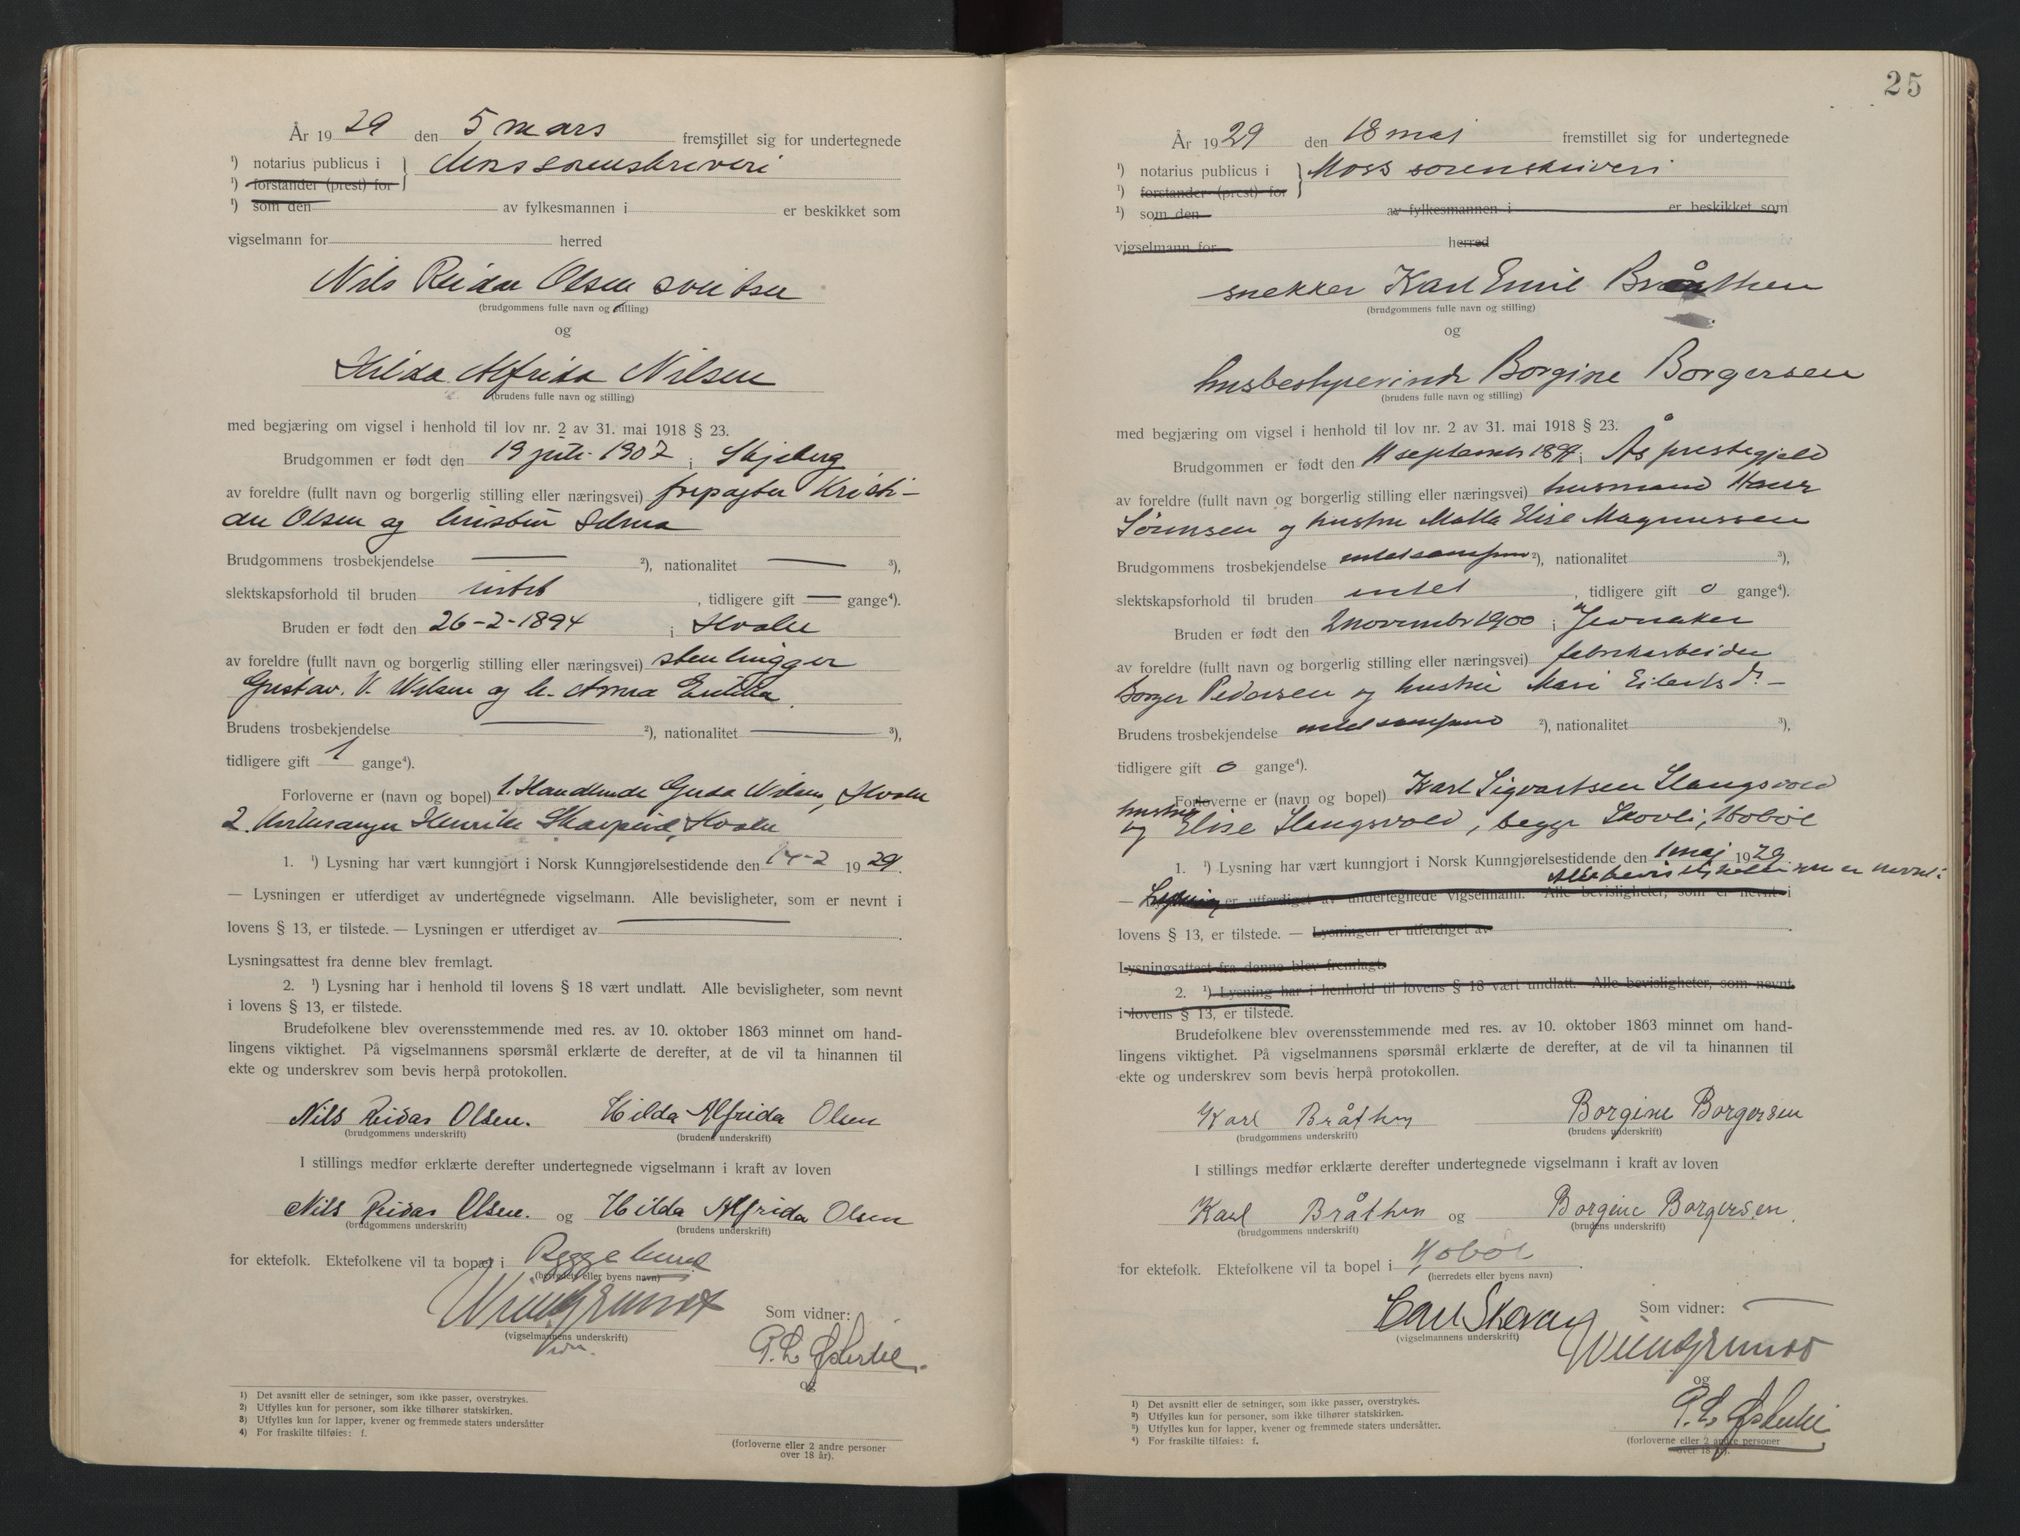 År 1929 den 5 mars fremstillet sig for undertegnede
¹) notarius publicus i } Moss sorenskriveri
¹) forstander (prest) for
¹) som den av fylkesmannen i er beskikket som
vigselmann for herred
Nils Reidar Olsen sveitser
(brudgommens fulle navn og stilling)
og
Hilda Alfrida Nilsen
(brudens fulle navn og stilling)
med begjæring om vigsel i henhold til lov nr. 2 av 31. mai 1918 § 23.
Brudgommen er født den 19 juli 1907 i Skjeberg
av foreldre (fullt navn og borgerlig stilling eller næringsvei) forpagter Kristi-
an Olsen og hustru Selma
Brudgommens trosbekjendelse — ²), nationalitet — ³),
slektskapsforhold til bruden intet, tidligere gift — gange⁴).
Bruden er født den 26-2-1894 i Hvaler
av foreldre (fullt navn og borgerlig stilling eller næringsvei) stenhugger
Gustav. V. Nilsen og h. Anna Emilia.
Brudens trosbekjendelse — ²), nationalitet — ³),
tidligere gift 1 gange⁴).
Forloverne er (navn og bopel) 1. Handlende Gerda Nilsen, Hvaler
2. Henrik Hvaler
1. ¹) Lysning har vært kunngjort i Norsk Kunngjørelsestidende den 14-2 1929.
— Lysningen er utferdiget av undertegnede vigselmann. Alle bevisligheter, som er nevnt i
lovens § 13, er tilstede. — Lysningen er utferdiget av —.
Lysningsattest fra denne blev fremlagt.
2. ¹) Lysning har i henhold til lovens § 18 vært undlatt. Alle bevisligheter, som nevnt
i lovens § 13, er tilstede.
Brudefolkene blev overensstemmende med res. av 10. oktober 1863 minnet om hand-
lingens viktighet. På vigselmannens spørsmål erklærte de derefter, at de vil ta hinannen til
ekte og underskrev som bevis herpå protokollen.
Nils Reidar Olsen. Hilda Alfrida Olsen
(brudgommens underskrift) (brudens underskrift)
I stillings medfør erklærte derefter undertegnede vigselmann i kraft av loven
Nils Reidar Olsen. og Hilda Alfrida Olsen
(brudgommens underskrift) (brudens underskrift)
for ektefolk. Ektefolkene vil ta bopel i Rygge
(herredets eller byens navn)
Som vidner:
(vigselmannens underskrift)
og
1) Det avsnitt eller de setninger, som ikke passer, overstrykes.
2) Utfylles kun for personer, som ikke tilhører statskirken.
3) Utfylles kun for lapper, kvener og fremmede staters undersåtter
4) For fraskilte tilføies: f.
(forloverne eller 2 andre personer
over 18 år).
25
År 1929 den 18 mai fremstillet sig for undertegnede
¹) notarius publicus i } Moss sorenskriveri
¹) forstander (prest) for
¹) som den av fylkesmannen i er beskikket som
vigselmann for herred
snekker Karl Emil Bråthen
(brudgommens fulle navn og stilling)
og
husbestyrerinde Borgine Borgersen
(brudens fulle navn og stilling)
med begjæring om vigsel i henhold til lov nr. 2 av 31. mai 1918 § 23.
Brudgommen er født den 11 september 1894 i Ås prestegjeld
av foreldre (fullt navn og borgerlig stilling eller næringsvei) husmand Hans
Sørensen og hustru Matla Elise Magnussen
Brudgommens trosbekjendelse intet samfund ²), nationalitet ³),
slektskapsforhold til bruden intet, tidligere gift 0 gange⁴).
Bruden er født den 2 november 1900 i Jevnaker
av foreldre (fullt navn og borgerlig stilling eller næringsvei) fabrikarbeider
Borger Pedersen og hustru Mari Eilertsd. —
Brudens trosbekjendelse intet samfund ²), nationalitet ³),
tidligere gift 0 gange⁴).
Forloverne er (navn og bopel) Karl Sigvartsen Slangsvold
og hustru Elise Slangsvold, begge Skovli, Hobøl
1. ¹) Lysning har vært kunngjort i Norsk Kunngjørelsestidende den 1 mai 1929.
Alle bevisligheter som er nevnt i
— Lysningen er utferdiget av undertegnede vigselmann. Alle bevisligheter, som er nevnt i
lovens § 13, er tilstede. — Lysningen er utferdiget av .
Lysningsattest fra denne blev fremlagt.
2. ¹) Lysning har i henhold til lovens § 18 vært undlatt. Alle bevisligheter, som nevnt
i lovens § 13, er tilstede.
Brudefolkene blev overensstemmende med res. av 10. oktober 1863 minnet om hand-
lingens viktighet. På vigselmannens spørsmål erklærte de derefter, at de vil ta hinannen til
ekte og underskrev som bevis herpå protokollen.
Karl Bråthen Borgine Borgersen
(brudgommens underskrift) (brudens underskrift)
I stillings medfør erklærte derefter undertegnede vigselmann i kraft av loven
Karl Bråthen og Borgine Borgersen.
(brudgommens underskrift) (brudens underskrift)
for ektefolk. Ektefolkene vil ta bopel i Hobøl.
(herredets eller byens navn)
Carl Som vidner:
(vigselmannens underskrift)
og
1) Det avsnitt eller de setninger, som ikke passer, overstrykes.
2) Utfylles kun for personer, som ikke tilhører statskirken.
3) Utfylles kun for lapper, kvener og fremmede staters undersåtter.
4) For fraskilte tilføies: f.
(forloverne eller 2 andre personer
over 18 år).